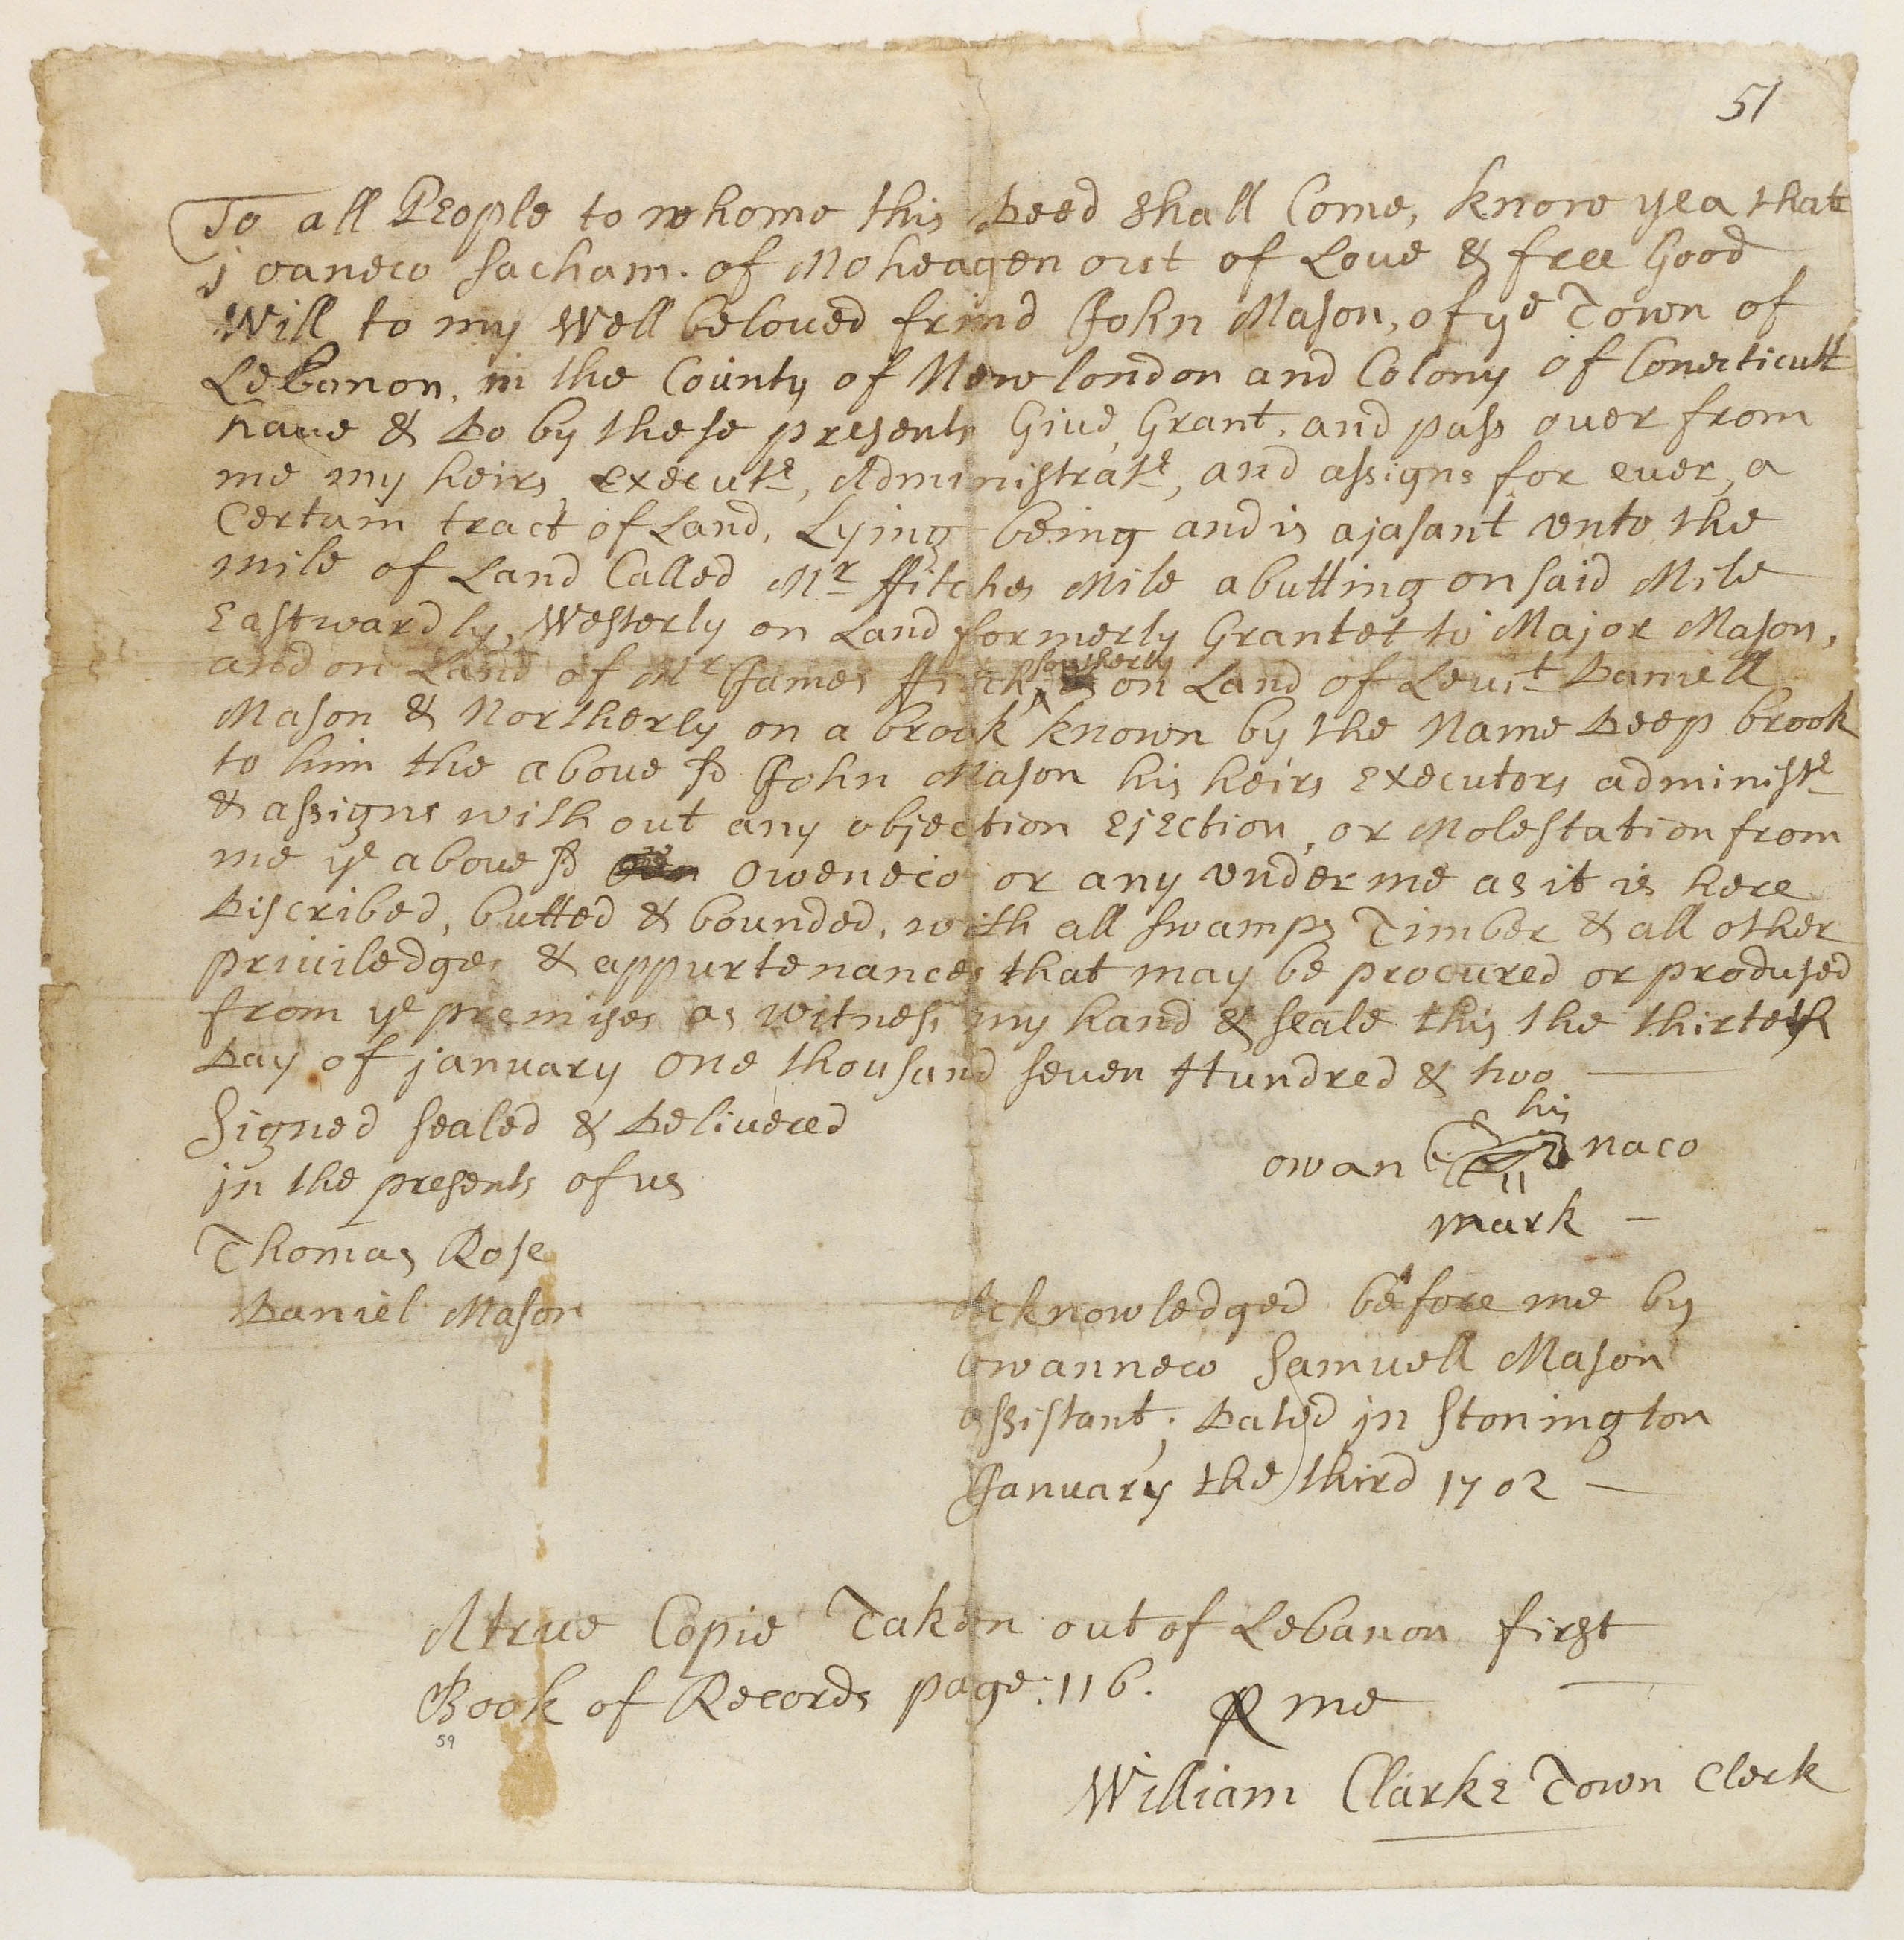 51
To all People to whome this Deed shall Come, know yea that
j oaneco sacham. of Moheagen out of Loue & free Good
Will to my Well beloued frind John Mason, of yᵉ Town of
Lebanon, in the County of New london and Colony of Conecticutt
haue & Do by these presents Giue, Grant, and pass ouer from
me my heirs, Executʳˢ, Administratʳˢ, and assigns for euer, a
Certain tract of Land, Lying being and is ajasant vnto the
mile of Land Called Mʳ ffitches Mile abutting on said Mile
Eastwardly, Westerly on Land formerly Grantet to Major Mason,
and on Land of Mʳ James ffitch, southerly on Land of Leuᵗ Daniell
Mason & Northerly on a brook known by the Name Deep brook
to him the aboue sd John Mason his heirs Executors administʳˢ
& assigns with out any objection Ejection, or Molestation from
me yᵉ aboue sd oweneco or any vnder me as it is here
Discribed, butted & bounded, with all swamps Timber & all other
priuiledges & appurtenances that may be procured or prodused
from yᵉ premises as witness my hand & seale this the thirteth
Day of january one thousand seuen Hundred & two
Signed sealed & Deliuered
jn the presents of us
Thomas Rose
Daniel Mason
his
owan naco
mark
Acknowledged before me by
owanneco Samuell Mason
assistant; Dated jn Stonington
January the third 1702
A true Copie Taken out of Lebanon first
Book of Records page: 116.
59
P me
William Clarke Town Clerk